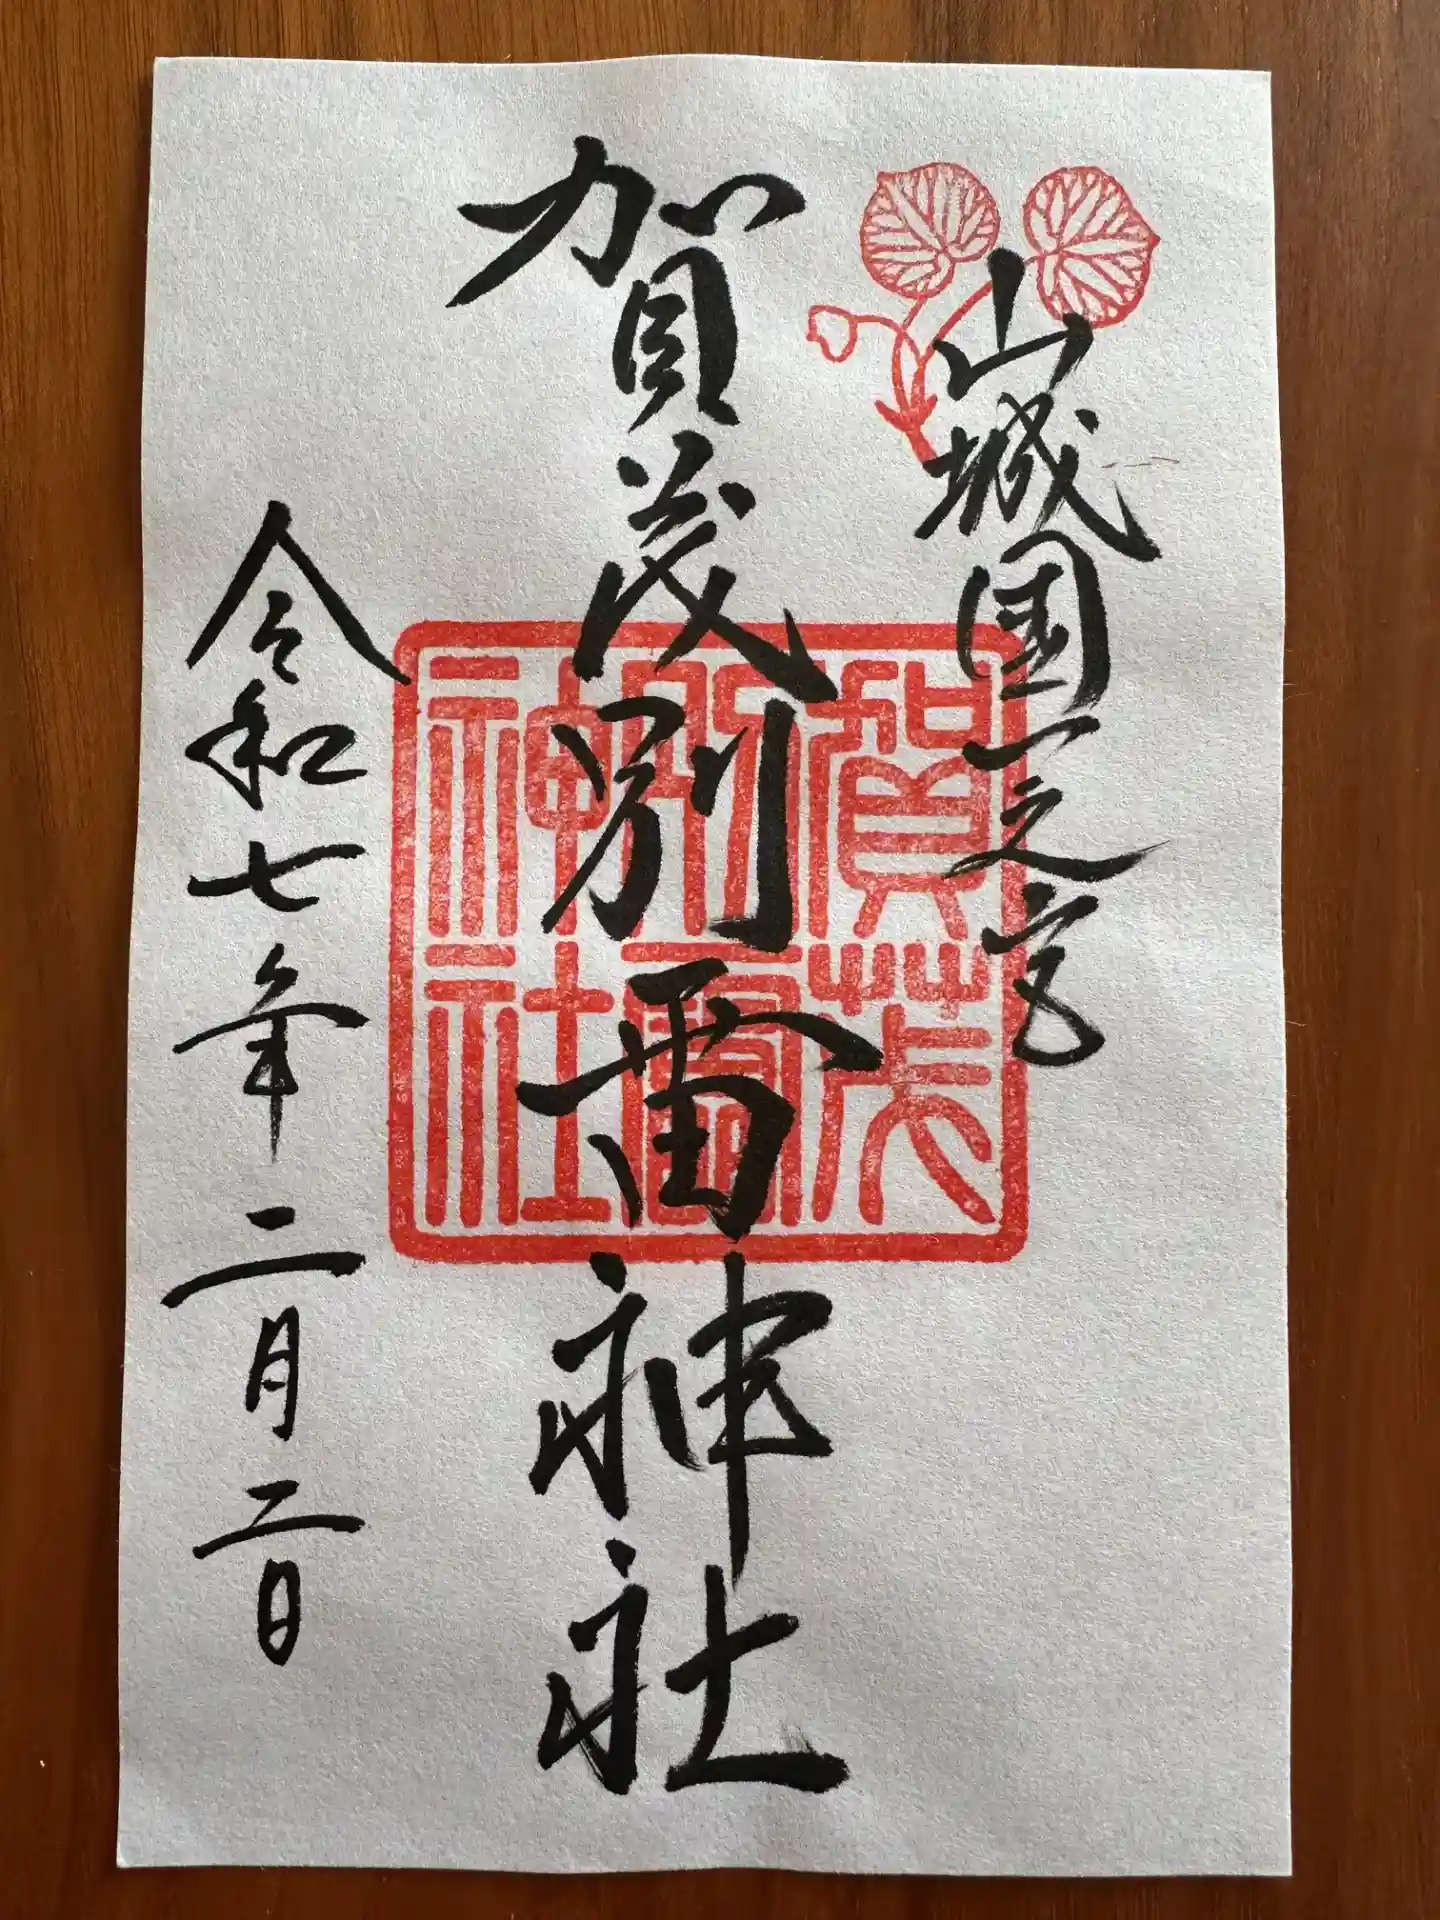 山城国一之宮
賀茂別雷神社
令和七年二月二日
賀茂
別雷
神社